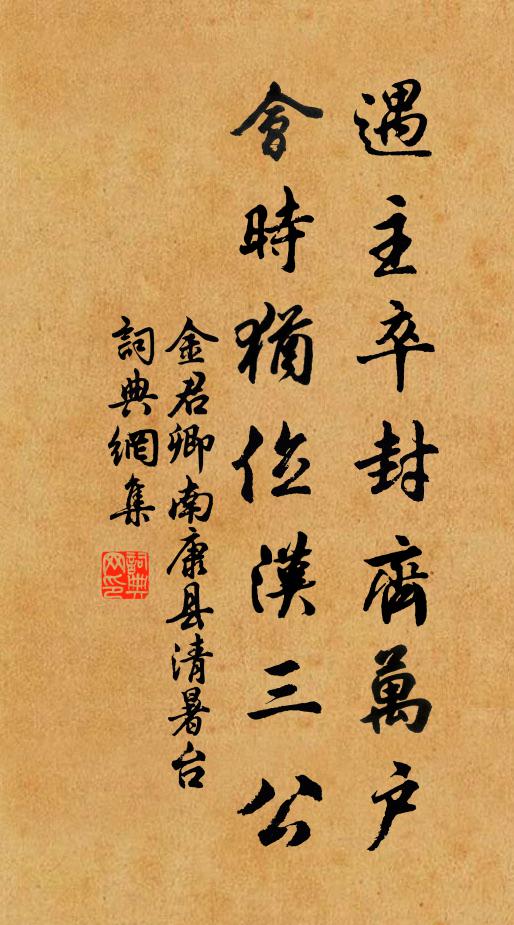 遇主卒封齊萬户
會時猶位漢三公
金君卿南康县清暑台
詞典網集
詞典
网印